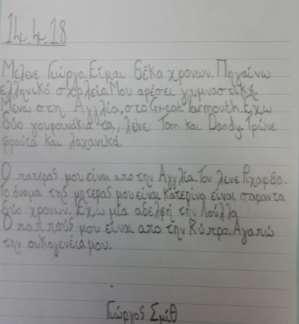 14.4.18
Μελενε Γιώργο. Είμαι δέκα χρονων. Πηγαίνω
ελληνικό σχολείο. Μου αρέσει γυμναστική.
Μένω στη Αγγλία, στο Great Yarmouth. Έχω
δύο χουφουνάκια τα λένε Tom και Doody. Τρώνε
φρούτα και λαχανικά.
Ο πατέρας μου είναι απο την Αγγλία. Τον λενε Ρίχαρδο.
Το όνομα της μητερας μου είναι Κατερίνα είναι σαραντα
δύο χρονων. Έχω μία αδελφή την Λούλλα.
Ο παππούς μου είναι απο την Κύπρο. Αγαπώ
την οικογένεια μου.
Γιώργος Σμίθ